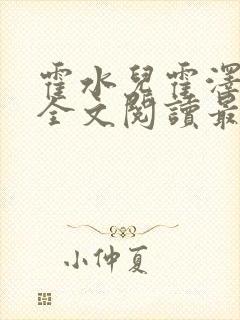 霍水兒霍澤
全文閱讀最
小仲夏